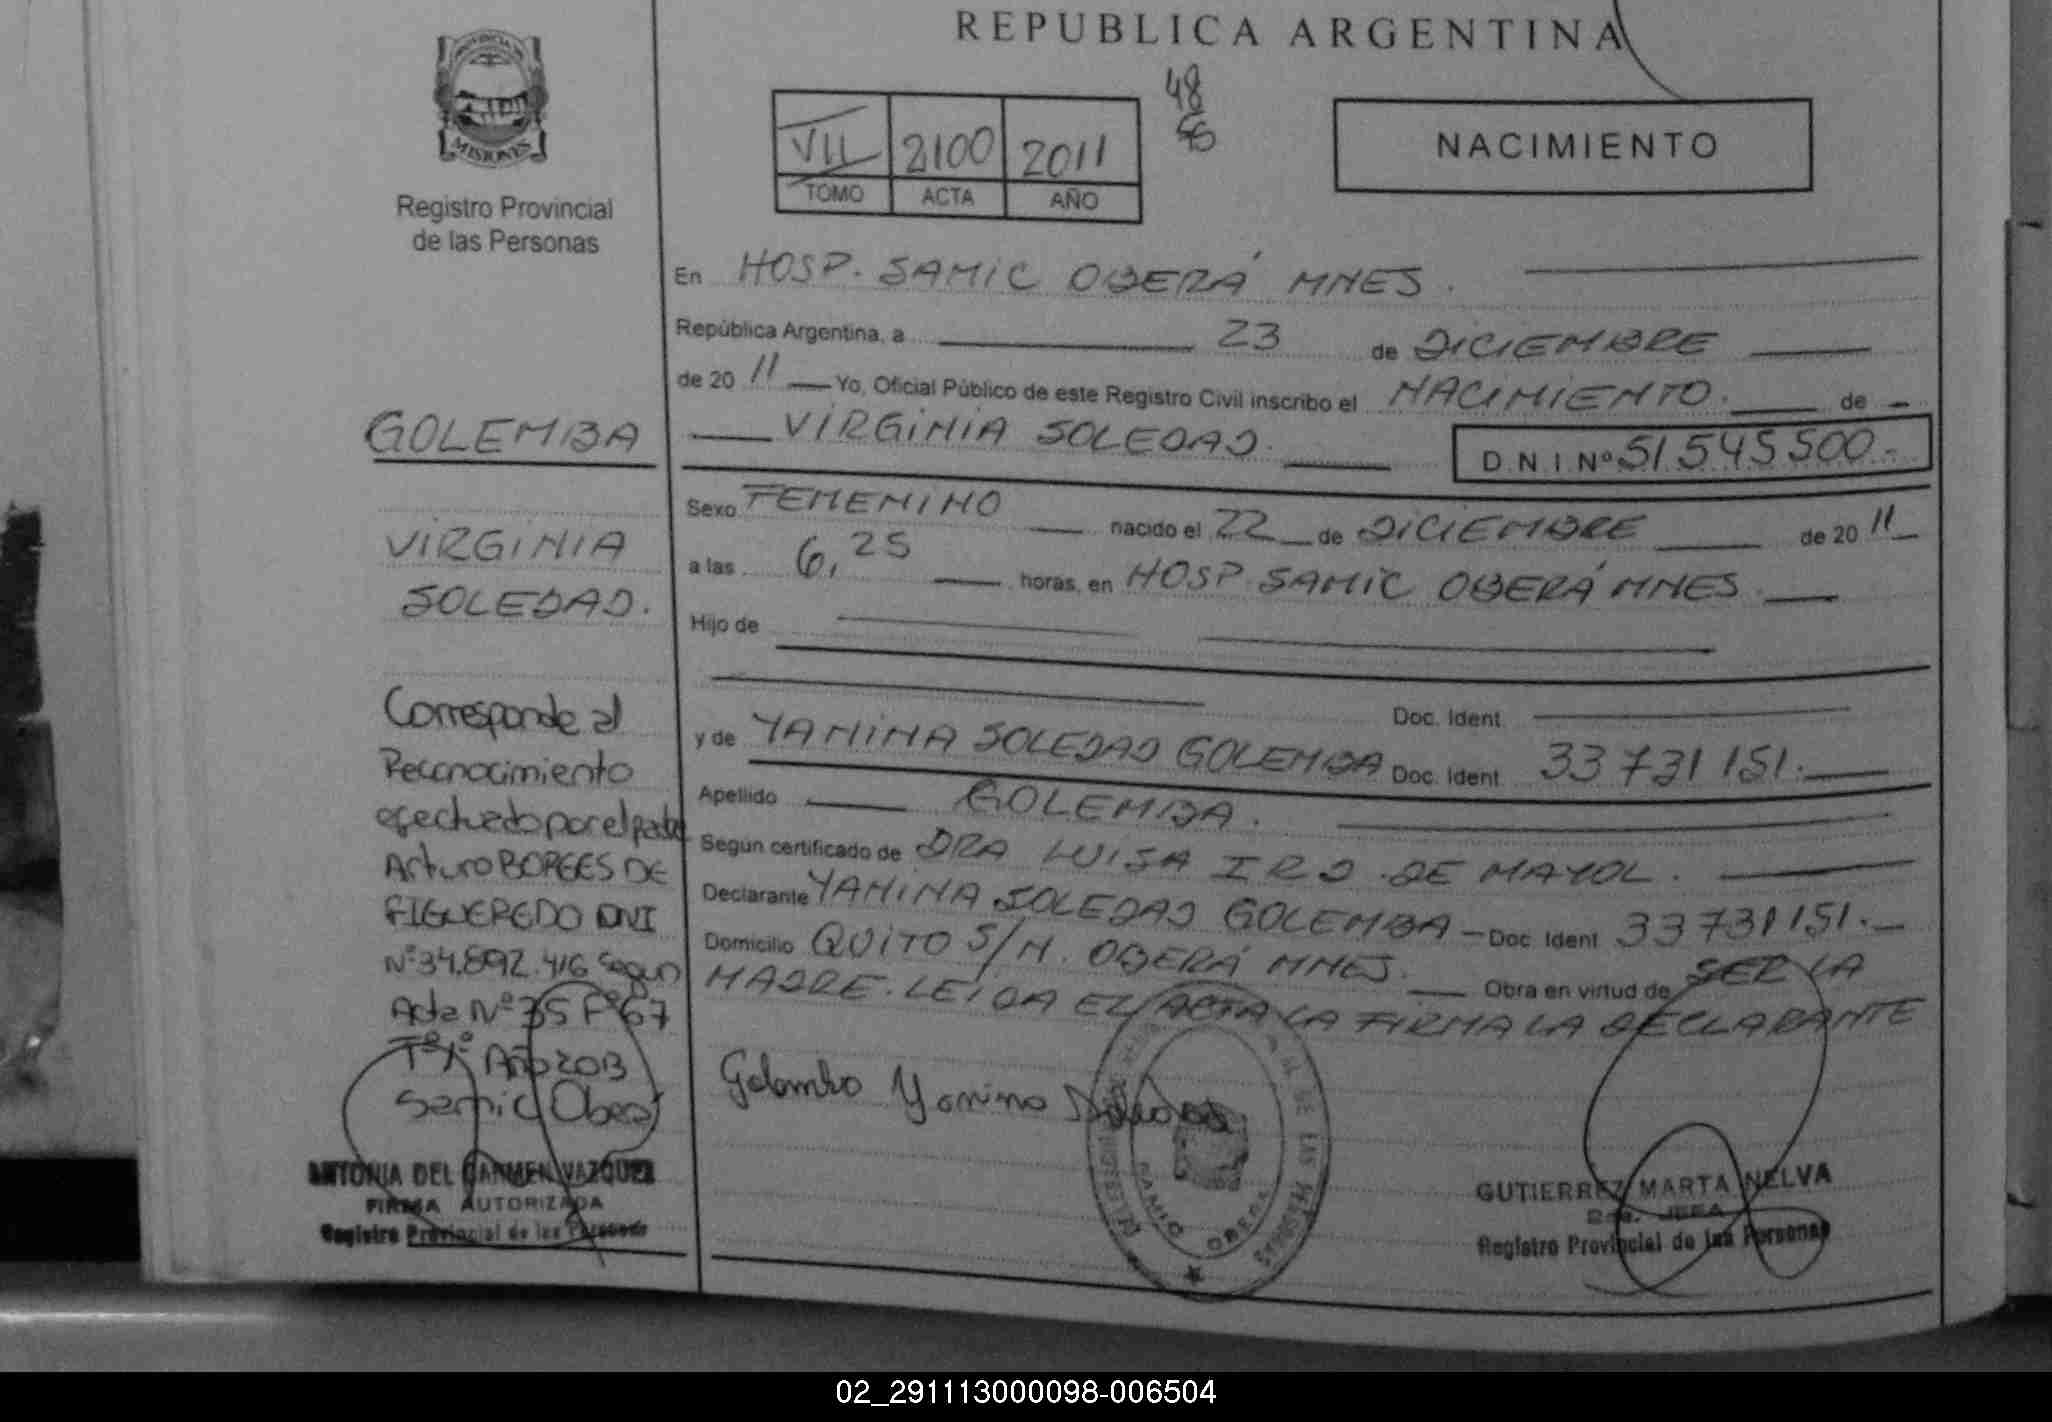 REPUBLICA ARGENTINA
PROVINCIA DE
MISIONES
Registro Provincial
de las Personas
VII 2100 2011
TOMO ACTA AÑO
48
NACIMIENTO
En HOSP. SAMIC OBERÁ MNES.
República Argentina, a 23 de DICIEMBRE
de 20 11 Yo, Oficial Público de este Registro Civil inscribo el NACIMIENTO. de
VIRGINIA SOLEDAD. D.N.I. Nº 51.545.500.-
Sexo FEMENINO nacido el 22 de DICIEMBRE de 20 11
a las 6,25 horas, en HOSP. SAMIC OBERÁ MNES.
Hijo de
Doc. Ident.
y de YAMINA SOLEDAD GOLEMBA Doc. Ident. 33 731 151.
Apellido GOLEMBA.
Según certificado de DRA LUISA I R D. DE MAYOL.
Declarante YAMINA SOLEDAD GOLEMBA - Doc. Ident. 33 731 151.
Domicilio QUITO S/N. OBERÁ MNES. Obra en virtud de SER LA
MADRE. LEIDA EL ACTA LA FIRMA LA DECLARANTE
GOLEMBA
VIRGINIA
SOLEDAD.
Corresponde al
Reconocimiento
efectuado por el padre
Arturo BORGES DE
FIGUEREDO DNI
Nº 34.892.416 segun
Acta Nº 35 Fº 67
Tº 1º Año 2013
Samic Oberá
ANTONIA DEL CARMEN VAZQUEZ
FIRMA AUTORIZADA
Registro Provincial de las Personas
Golemba Yamina Soledad
DE LAS PERSONAS
SAMIC OBERA
GUTIERREZ MARTA NELVA
JEFA
Registro Provincial de las Personas
02_291113000098-006504